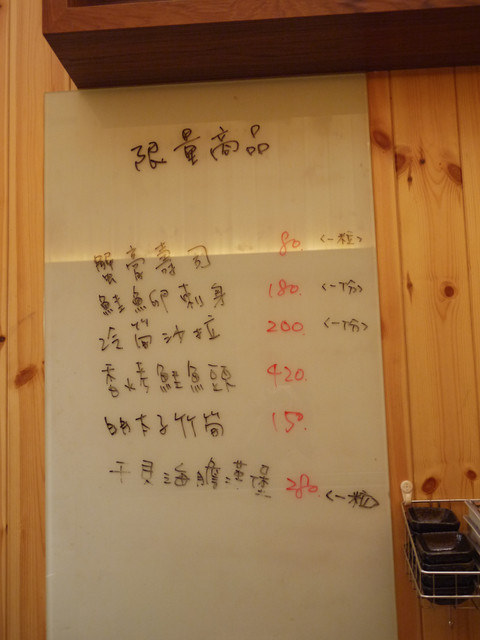 限量商品
蟹膏壽司 80. <一粒>
鮭魚卵刺身 180. <一份>
冷筍沙拉 200. <一份>
香烤鮭魚頭 420.
明太子竹筍 150.
干貝海膽漢堡 280. <一粒>